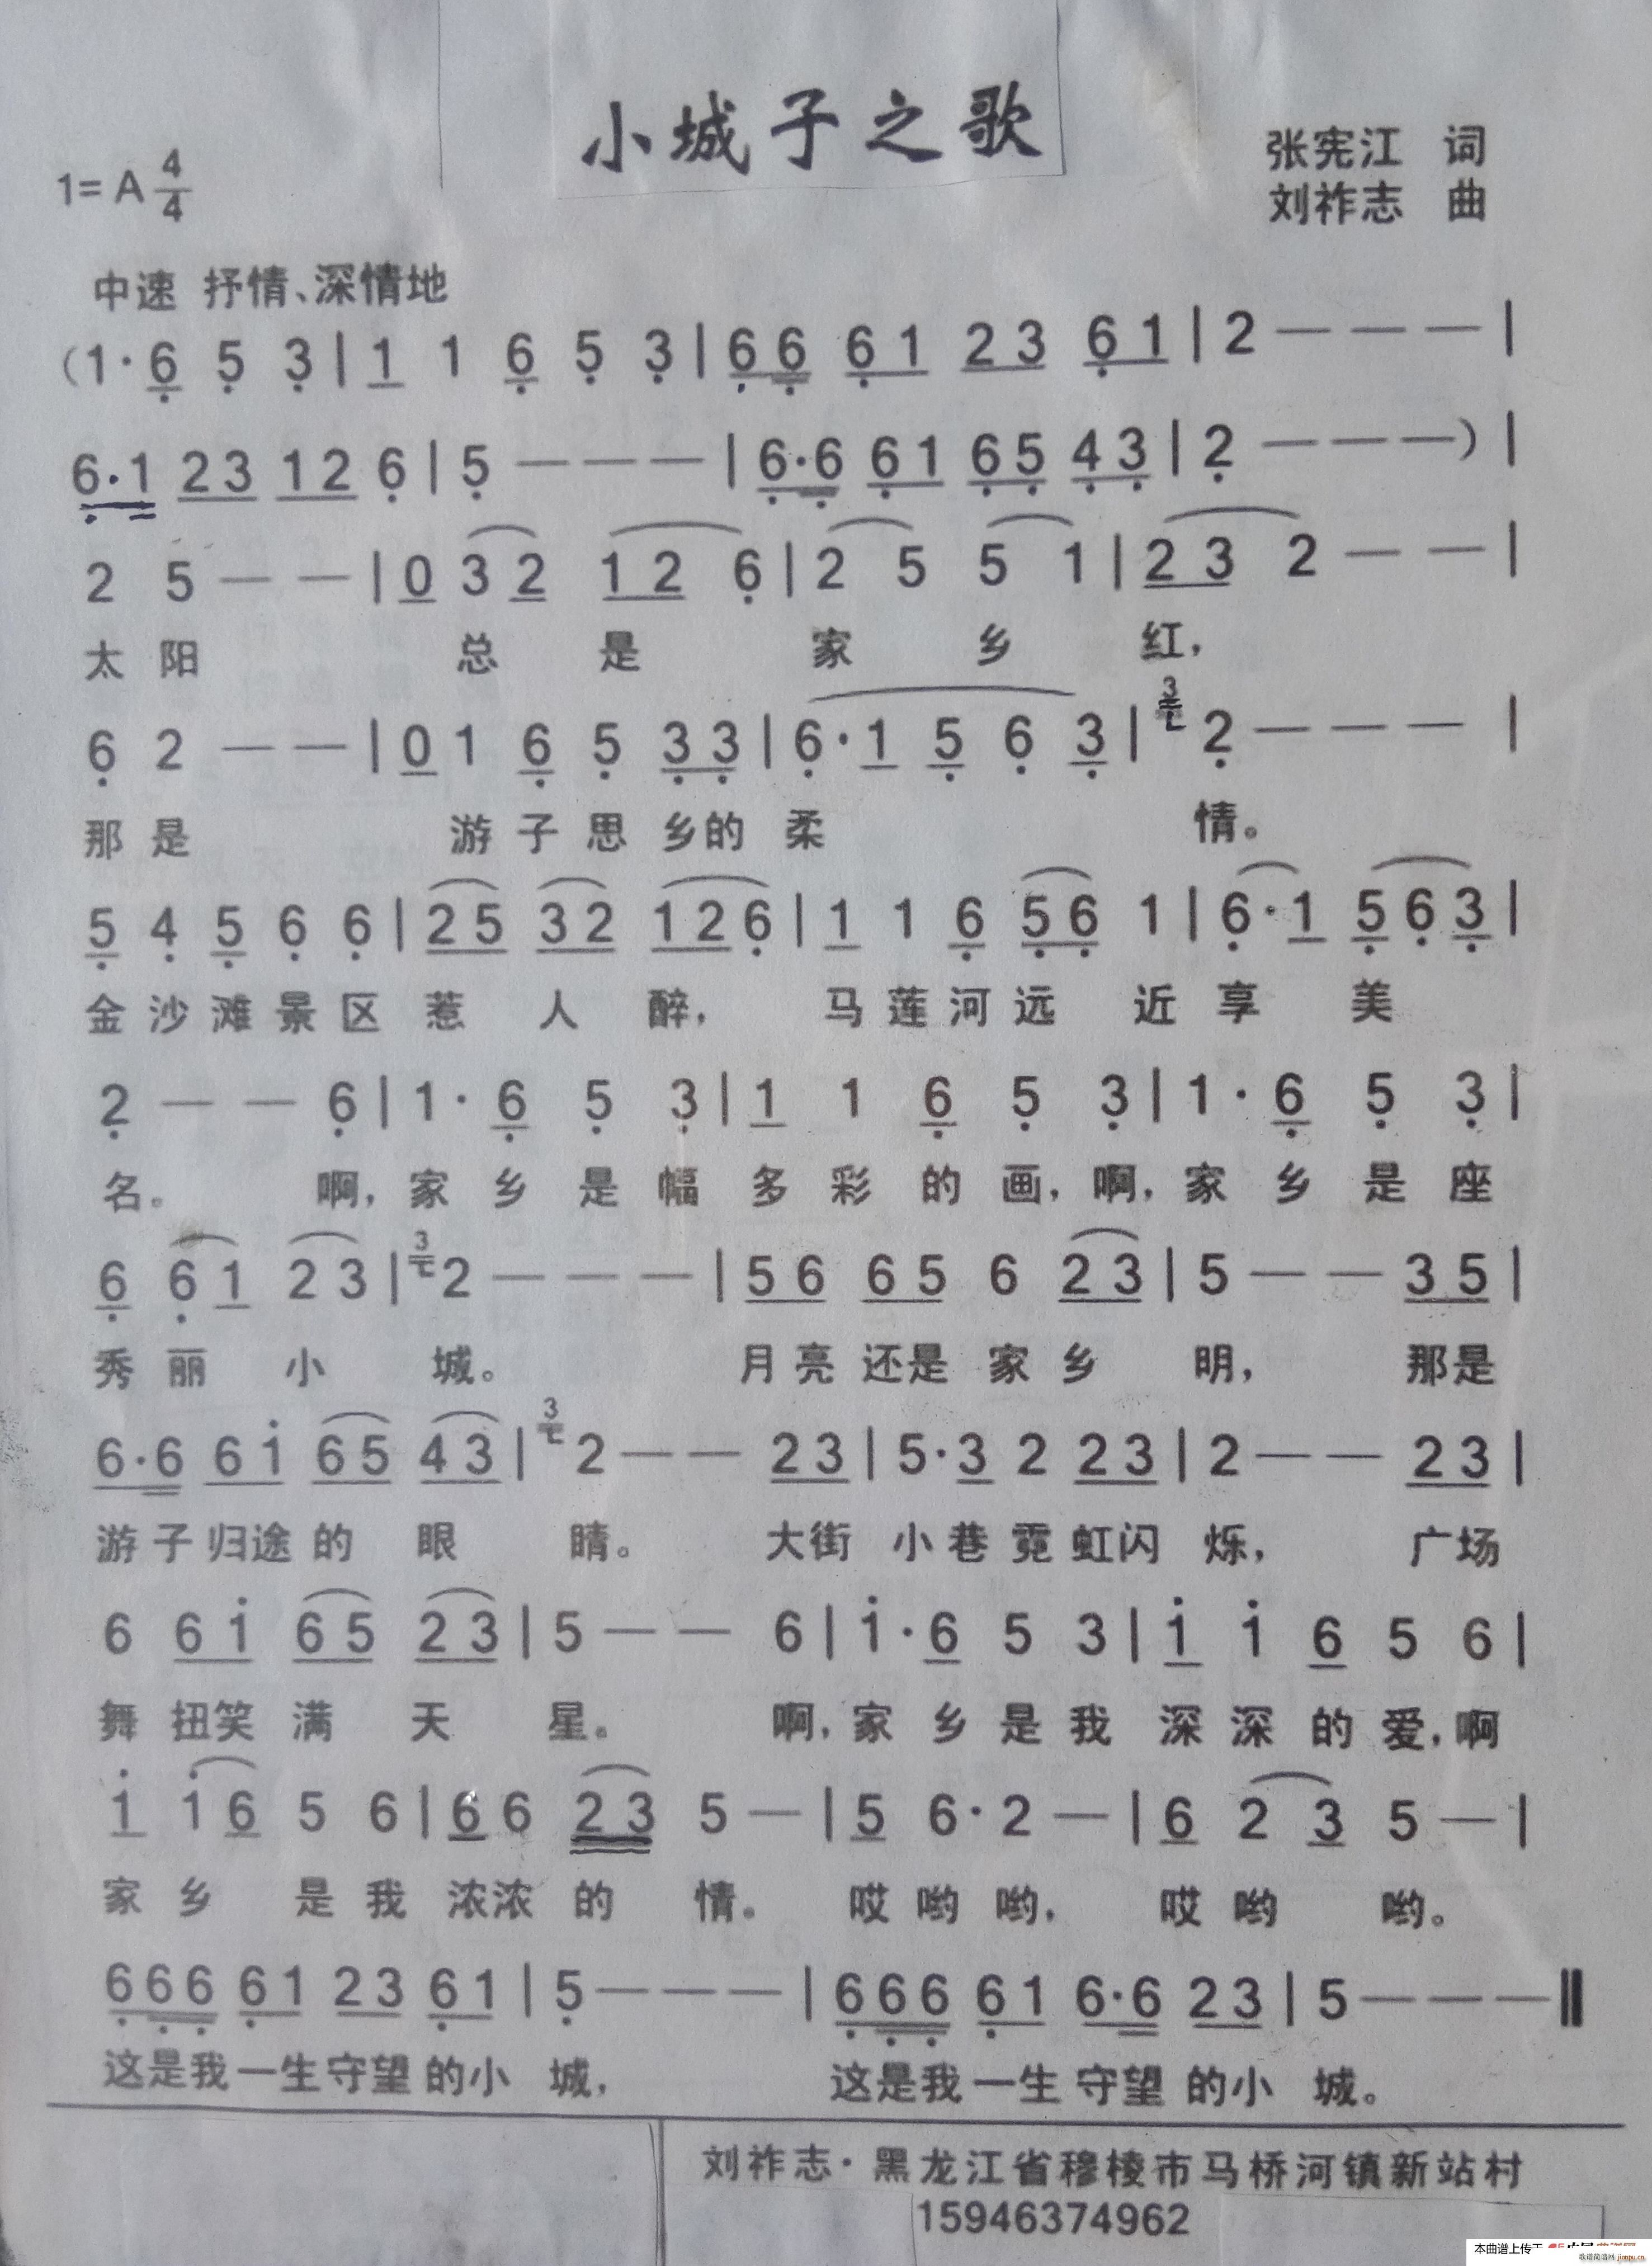 小城子之歌
1=A 4/4
张宪江 词
刘祚志 曲
中速 抒情、深情地
(1· 6 5 3 | 1 1 6 5 3 | 6 6 6 1 2 3 6 1 | 2 — — — |
6·1 2 3 1 2 6 | 5 — — — | 6·6 6 1 6 5 4 3 | 2 — — — ) |
2 5 — — | 0 3 2 1 2 6 | 2 5 5 1 | 2 3 2 — — |
太 阳 总 是 家 乡 红，
6 2 — — | 0 1 6 5 3 3 | 6·1 5 6 3 | 3 2 — — — |
那 是 游 子 思 乡 的 柔 情。
5 4 5 6 6 | 2 5 3 2 1 2 6 | 1 1 6 5 6 1 | 6·1 5 6 3 |
金 沙 滩 景 区 惹 人 醉， 马 莲 河 远 近 享 美
2 — — 6 | 1· 6 5 3 | 1 1 6 5 3 | 1· 6 5 3 |
名。 啊，家 乡 是 幅 多 彩 的 画，啊，家 乡 是 座
6 6 1 2 3 | 3 2 — — — | 5 6 6 5 6 2 3 | 5 — — 3 5 |
秀 丽 小 城。 月 亮 还是 家 乡 明， 那是
6·6 6 1 6 5 4 3 | 3 2 — — 2 3 | 5·3 2 2 3 | 2 — — 2 3 |
游 子 归途 的 眼 睛。 大街 小 巷 霓 虹闪 烁， 广场
6 6 1 6 5 2 3 | 5 — — 6 | 1·6 5 3 | 1 1 6 5 6 |
舞 扭笑 满 天 星。 啊，家 乡 是 我 深 深 的 爱，啊
1 1 6 5 6 | 6 6 2 3 5 — | 5 6·2 — | 6 2 3 5 — |
家 乡 是 我 浓浓 的 情。 哎 哟 哟， 哎 哟 哟。
6 6 6 6 1 2 3 6 1 | 5 — — — | 6 6 6 6 1 6·6 2 3 | 5 — — — ‖
这是我一生守望 的小 城， 这是我一生 守望 的小 城。
刘祚志·黑龙江省穆棱市马桥河镇新站村
15946374962
本曲谱上传于
歌谱简谱网 jianpu.cn